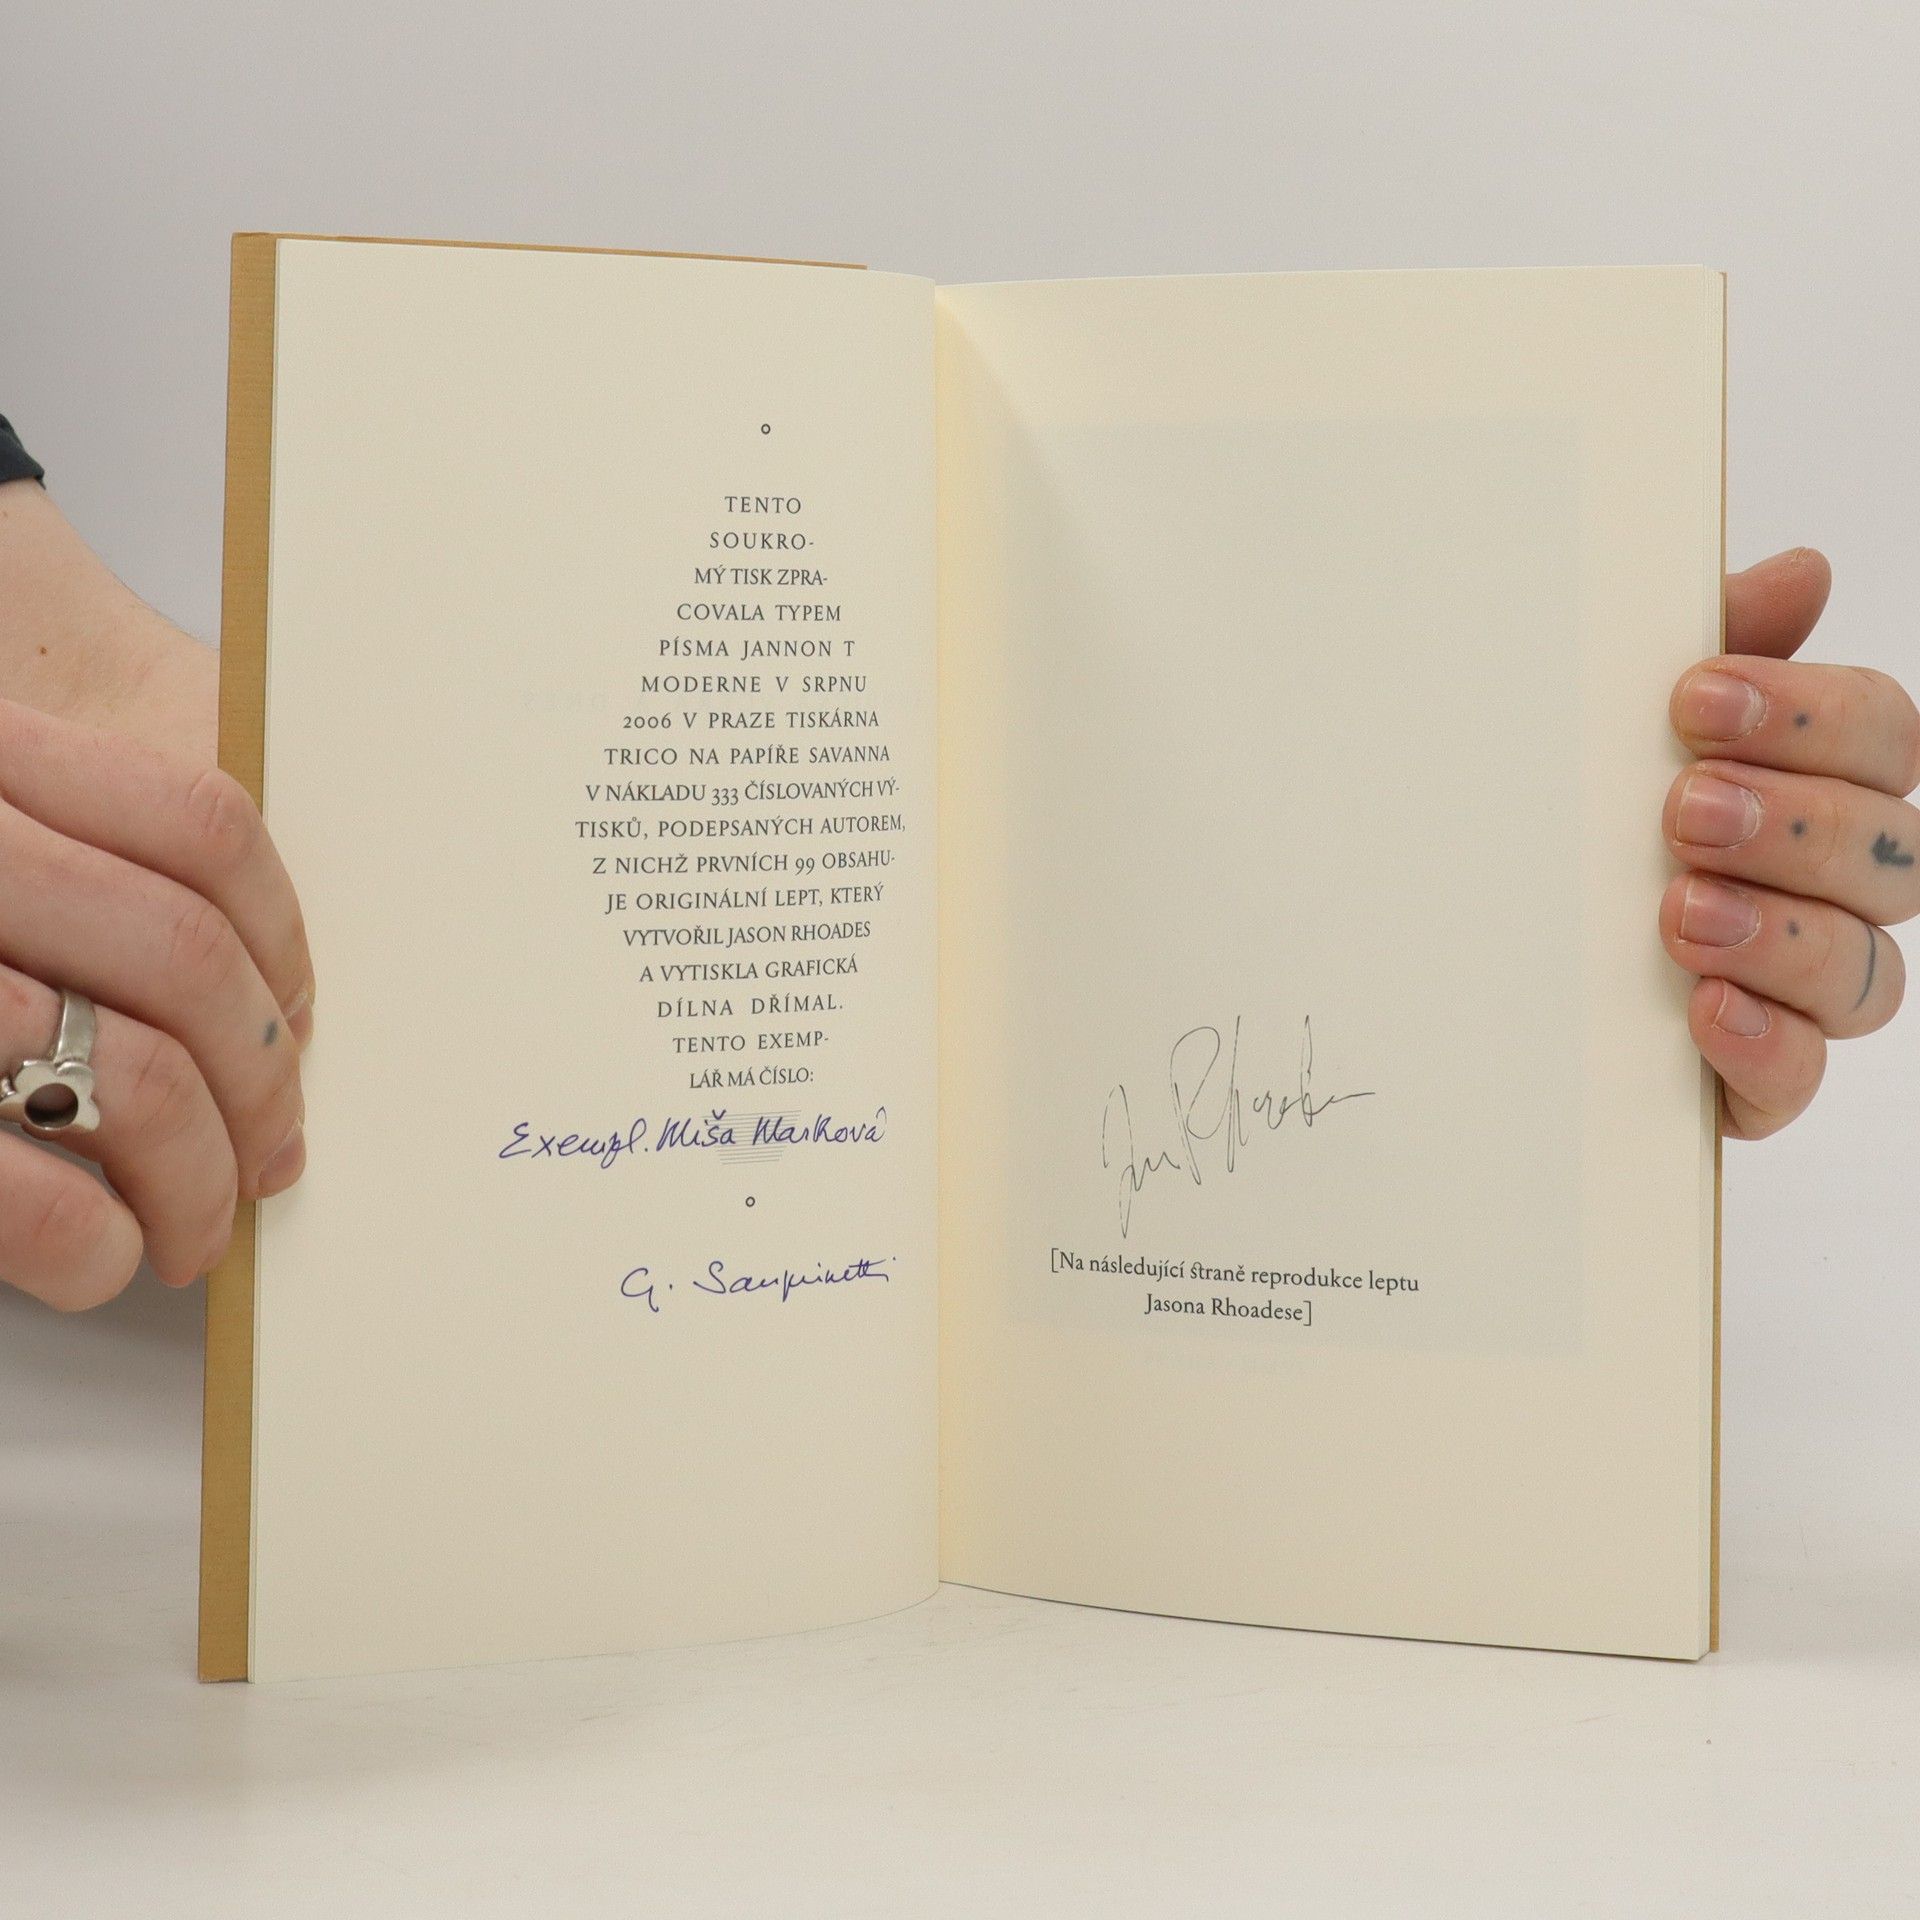 TENTO
SOUKRO-
MÝ TISK ZPRA-
COVALA TYPEM
PÍSMA JANNON T
MODERNE V SRPNU
2006 V PRAZE TISKÁRNA
TRICO NA PAPÍŘE SAVANNA
V NÁKLADU 333 ČÍSLOVANÝCH VÝ-
TISKŮ, PODEPSANÝCH AUTOREM,
Z NICHŽ PRVNÍCH 99 OBSAHU-
JE ORIGINÁLNÍ LEPT, KTERÝ
VYTVOŘIL JASON RHOADES
A VYTISKLA GRAFICKÁ
DÍLNA DŘÍMAL.
TENTO EXEMP-
LÁŘ MÁ ČÍSLO:
Exempl. Míša Marková
G.
[Na následující straně reprodukce leptu
Jasona Rhoadese]